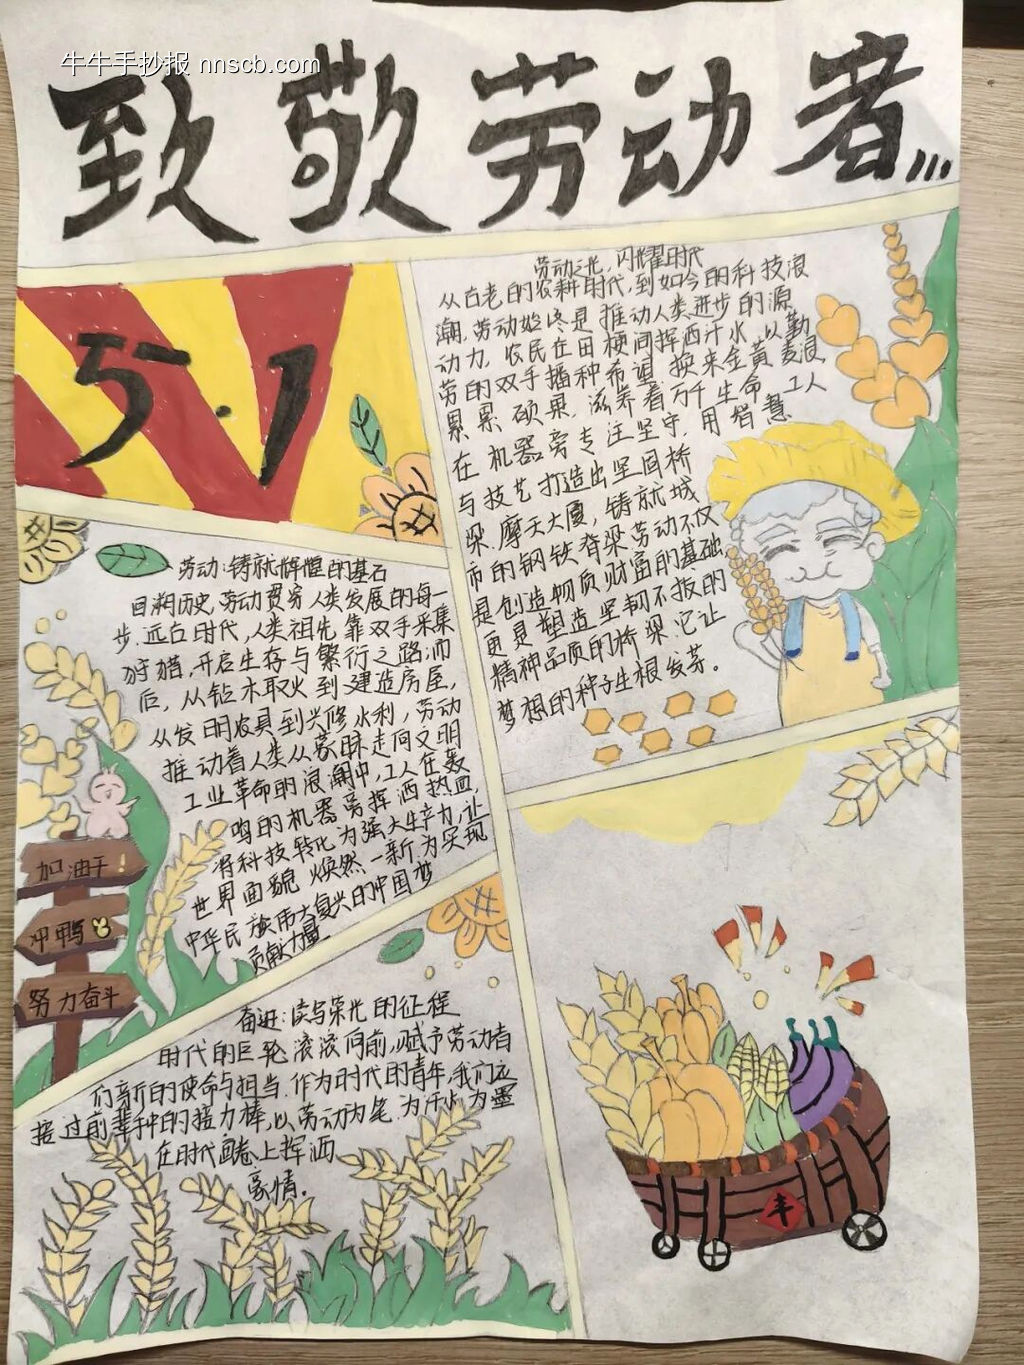 牛牛手抄报 nnscb.com
致敬劳动者...
5·1
劳动之光,闪耀时代
从古老的农耕时代,到如今的科技浪
潮,劳动始终是推动人类进步的源
动力,农民在田梗间挥洒汗水,以勤
劳的双手播种希望,换来金黄麦浪,
累累硕果,滋养着万千生命,工人
在机器旁专注坚守,用智慧
与技艺打造出坚固桥
梁,摩天大厦,铸就城
市的钢铁脊梁劳动不仅
是创造物质财富的基础
更是塑造坚韧不拔的
精神品质的桥梁,它让
梦想的种子生根发芽。
劳动:铸就辉煌的基石
回溯历史,劳动贯穿人类发展的每一
步.远古时代,人类祖先靠双手采集
狩猎,开启生存与繁衍之路,而
后,从钻木取火到建造房屋,
从发明农具到兴修水利,劳动
推动着人类从蒙昧走向文明
工业革命的浪潮中,工人在轰
鸣的机器旁挥洒热血,
将科技转化为强大生产力,让
世界面貌焕然一新,为实现
中华民族伟大复兴的中国梦
贡献力量。
加油干!
冲鸭
努力奋斗
奋进:续写荣光的征程
时代的巨轮滚滚向前,赋予劳动者
们新的使命与担当.作为时代的青年,我们应
接过前辈种的接力棒,以劳动为笔,为汗水为墨
在时代画卷上挥洒
豪情.
丰